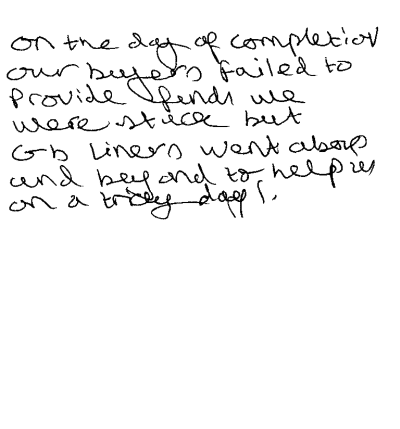 on the day of completion
our buyers failed to
provide funds we
were stuck but
GB Liners went above
and beyond to help us
on a tricky day!.